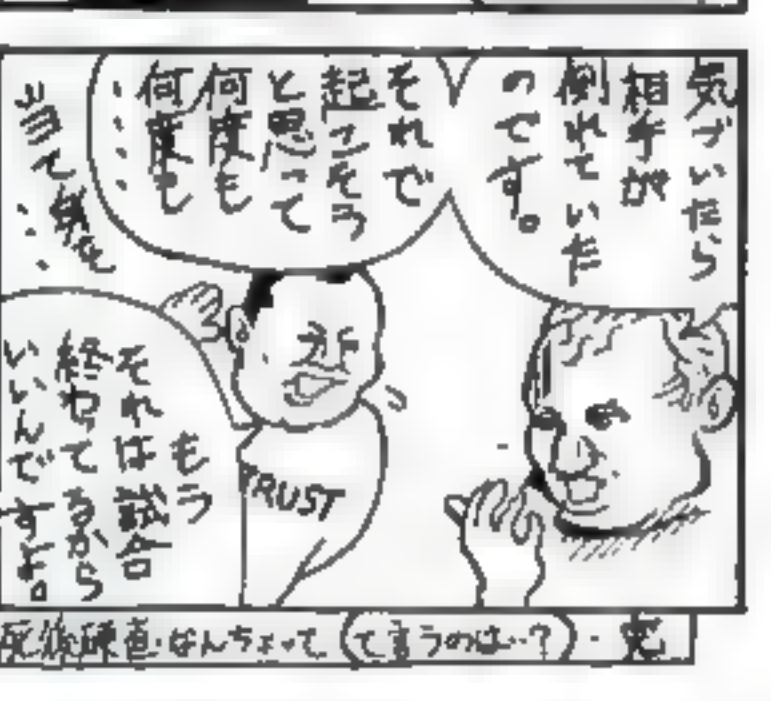 気づいたら
相手が
倒れていた
のです。
それで
起こそう
と思って
何度も
何度も
……
もう
それは試合
終わってるから
いいんですよ。
TRUST
死後硬直・なんちょって(て言うのは…?)・完